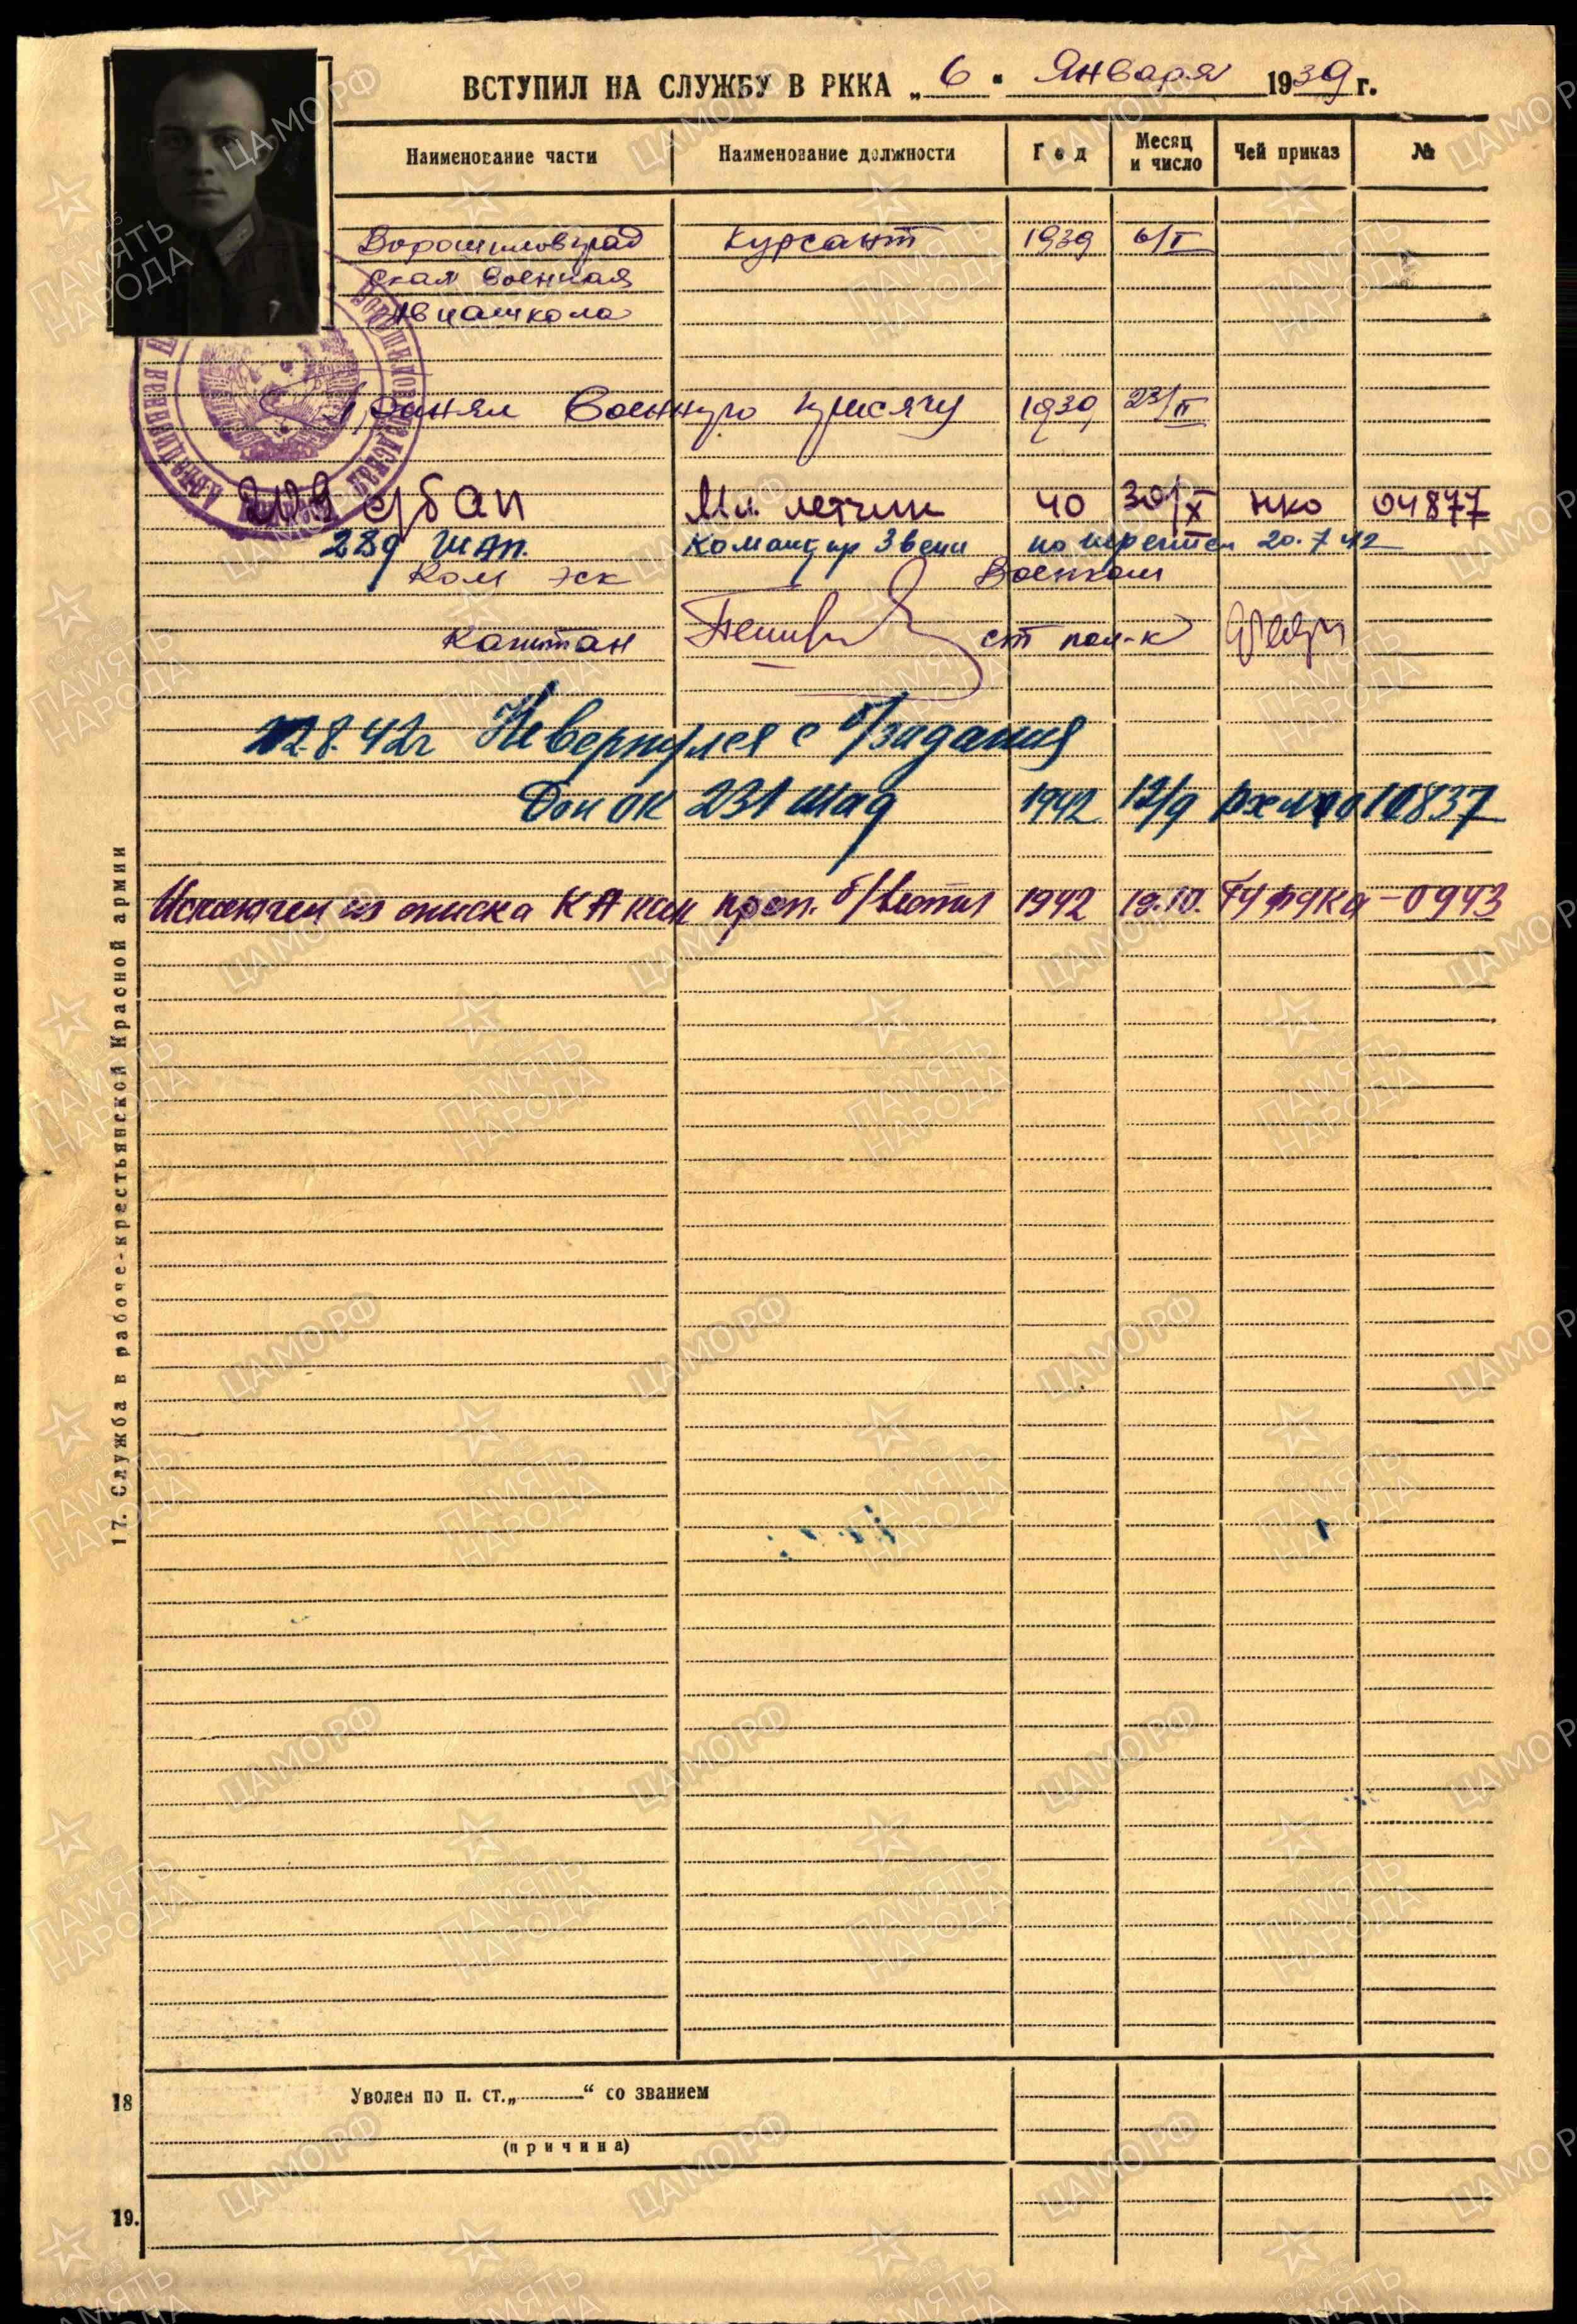 ВСТУПИЛ НА СЛУЖБУ В РККА „6“ Января 1939 г.
Наименование части Наименование должности Год Месяц и число Чей приказ №
Ворошиловград Курсант 1939 6/I
ская военная
Авиашкола
Принял Военную присягу 1939 23/II
сбап Мл. летчик 40 30/X НКО 04877
289 ШАП. Командир Звена 20.7.42
Ком эск Военком
Капитан ст пол-к
8.42г Невернулся с б/задания
231 шад 1942 12/9 10837
Исключен из списка КА как проп. б/вести 1942 19.10. ГУФУКА-0943
17. Служба в рабоче-крестьянской Красной армии
18 Уволен по п. ст. „ “ со званием
(причина)
19.
ЦАМО.РФ
ПАМЯТЬ НАРОДА
1941-1945